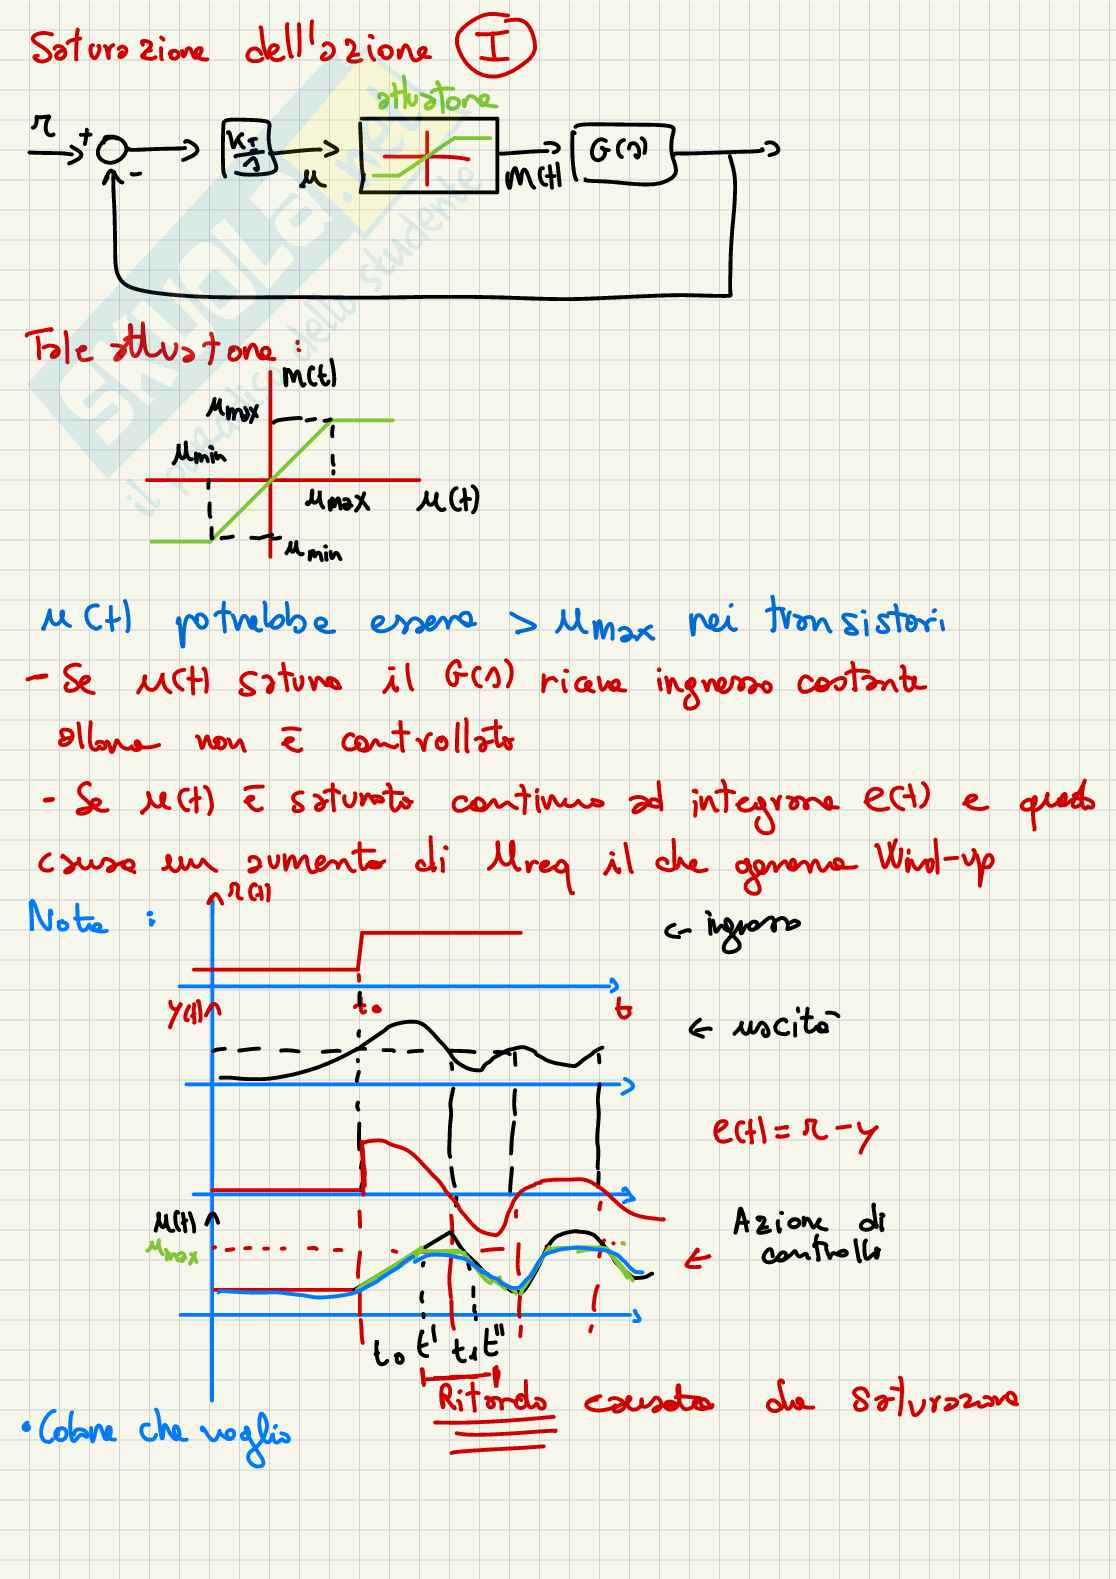 Saturazione dell'azione I
attuatore
r + - KI/s u m(t) G(s)
SKUOLA.net
il paradiso dello studente
Tale attuatore :
m(t)
umax
umin
umax u(t)
umin
u(t) potrebbe essere > umax nei transistori
- Se u(t) satura il G(s) riceve ingresso costante
allora non è controllato
- Se u(t) è saturato continuo ad integrare e(t) e questo
causa un aumento di ureq il che genera Wind-up
Note :
r(t)
← ingresso
t0 t
y(t)
← uscita
e(t) = r - y
u(t)
umax
← Azione di
controllo
t0 t' t1 t''
Ritardo causato da saturazione
• Colore che voglio